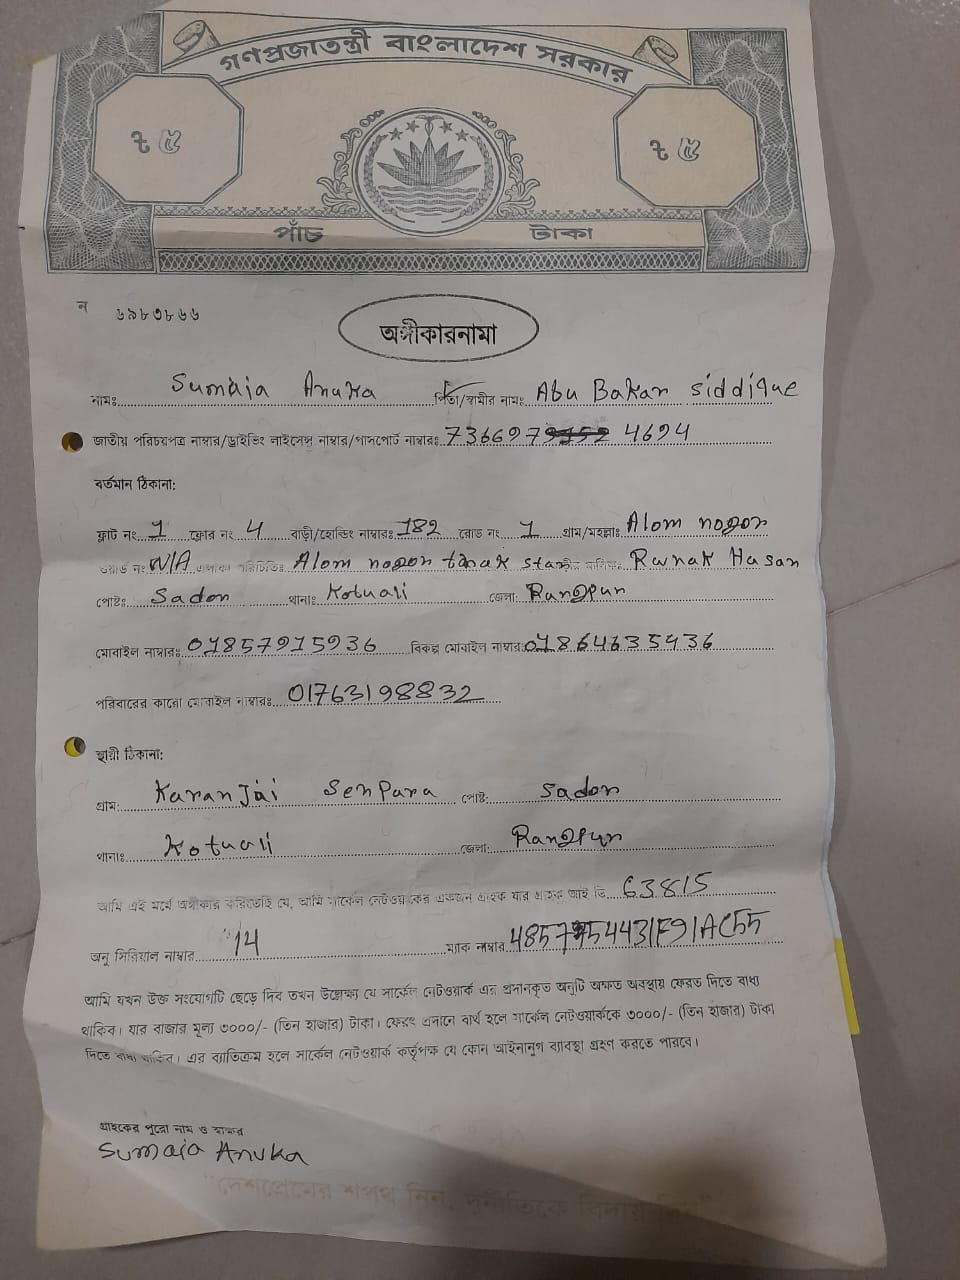 গণপ্রজাতন্ত্রী বাংলাদেশ সরকার
৳ ৫ ৳ ৫
পাঁচ টাকা
ন ৬৯৮৩৮৬৬
অঙ্গীকারনামা
নামঃ Sumaia Anuka পিতা/স্বামীর নামঃ Abu Bakar siddique
জাতীয় পরিচয়পত্র নাম্বার/ড্রাইভিং লাইসেন্স নাম্বার/পাসপোর্ট নাম্বারঃ 7366979 4694
বর্তমান ঠিকানা:
ফ্লাট নং 1 ফ্লোর নং 4 বাড়ী/হোল্ডিং নাম্বারঃ 182 রোড নং 1 গ্রাম/মহল্লাঃ Alom nogor
ওয়ার্ড নং N/A এলাকা পরিচিতিঃ Alom nogor Ranak Hasan
পোষ্টঃ Sador থানাঃ Kotuali জেলা: Rangpur
মোবাইল নাম্বারঃ 01857915936 বিকল্প মোবাইল নাম্বার: 01864635436
পরিবারের কারো মোবাইল নাম্বারঃ 01763198832
স্থায়ী ঠিকানা:
গ্রাম: Karanjai SenPara পোষ্ট: Sador
থানাঃ Kotuali জেলা: Rangpur
আমি এই মর্মে অঙ্গীকার করিতেছি যে, আমি সার্কেল নেটওয়ার্কের একজন গ্রাহক যার গ্রাহক আই ডি 63815
অনু সিরিয়াল নাম্বার 14 ম্যাক নাম্বার
আমি যখন উক্ত সংযোগটি ছেড়ে দিব তখন উল্লেক্ষ্য যে সার্কেল নেটওয়ার্ক এর প্রদানকৃত অনুটি অক্ষত অবস্থায় ফেরত দিতে বাধ্য
থাকিব। যার বাজার মূল্য ৩০০০/- (তিন হাজার) টাকা। ফেরৎ প্রদানে ব্যর্থ হলে সার্কেল নেটওয়ার্ককে ৩০০০/- (তিন হাজার) টাকা
দিতে বাধ্য থাকিব। এর ব্যতিক্রম হলে সার্কেল নেটওয়ার্ক কর্তৃপক্ষ যে কোন আইনানুগ ব্যাবস্থা গ্রহণ করতে পারবে।
গ্রাহকের পুরো নাম ও স্বাক্ষর
Sumaia Anuka
"দেশপ্রেমের শপথ নিন, দুর্নীতিকে বিদায় দিন"